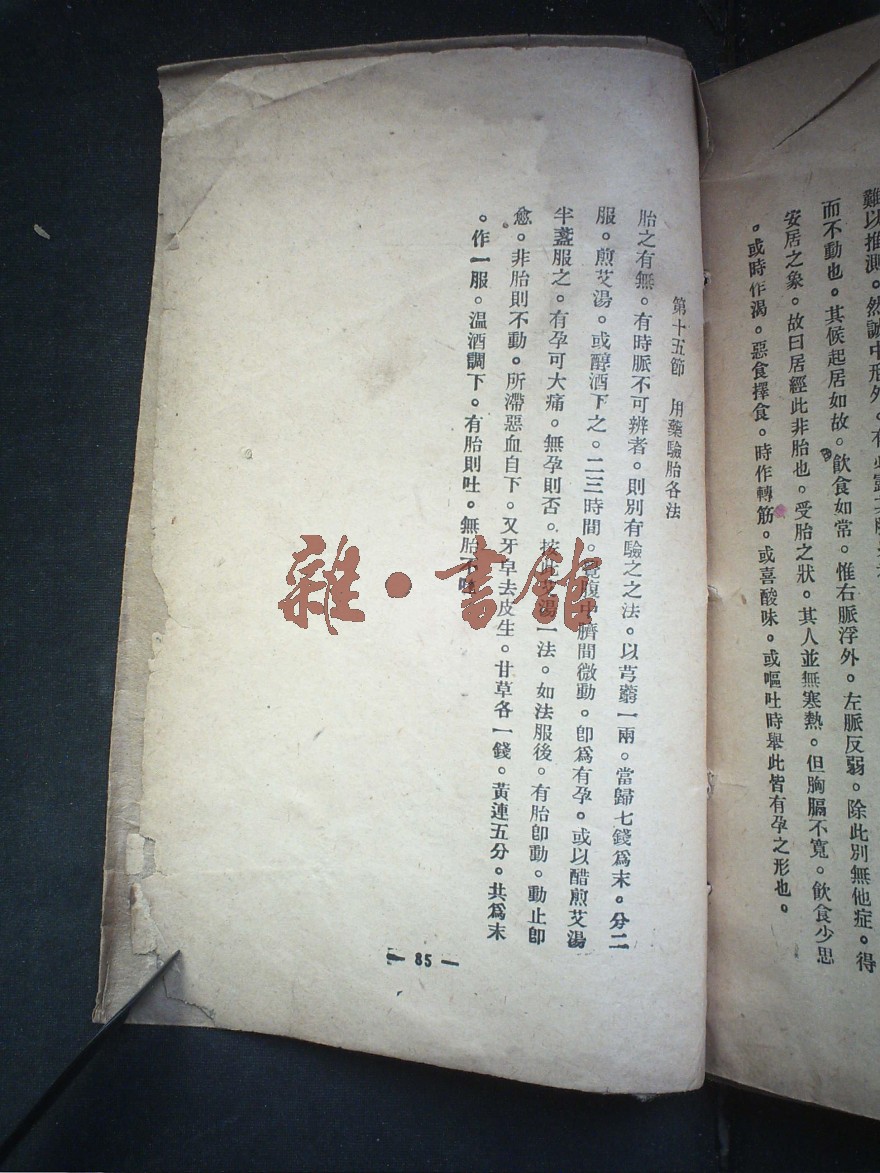 難以推測。然誠中形外。有
而不動也。其候起居如故。飲食如常。惟右脈浮外。左脈反弱。除此別無他症。得
安居之象。故曰居經此非胎也。受胎之狀。其人並無寒熱。但胸膈不寬。飲食少思
。或時作渴。惡食擇食。時作轉筋。或喜酸味。或嘔吐時舉此皆有孕之形也。
第十五節 用藥驗胎各法
胎之有無。有時脈不可辨者。則別有驗之之法。以芎藭一兩。當歸七錢爲末。分二
服。煎艾湯。或醇酒下之。二三時間。覺腹中臍間微動。卽爲有孕。或以醋煎艾湯
半盞服之。有孕可大痛。無孕則否。按此艾湯一法。如法服後。有胎卽動。動止卽
愈。非胎則不動。所滯惡血自下。又牙皂去皮生。甘草各一錢。黃連五分。共爲末
。作一服。温酒調下。有胎則吐。無胎不吐
— 85 —
雜·書館